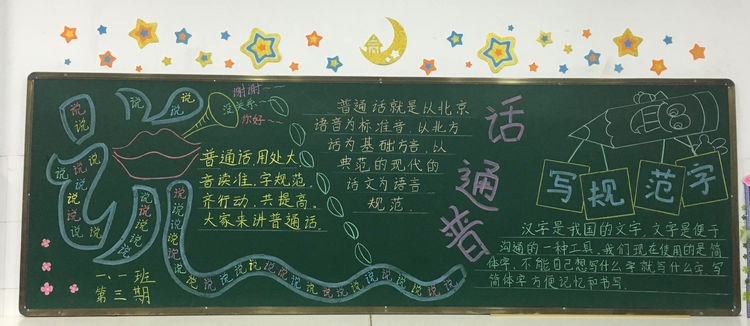 说
说 说 说
说 说 说
说 说
说 说 说
说 说
说 说
说 说
说 说 说 说 说 说 说 说 说 说 说 说
谢谢~~
没关系~
你好~
普通话,用处大
音读准,字规范,
齐行动,共提高。
大家来讲普通话。
一、一班
第三期
普通话就是以北京
语音为标准音,以北方
话为基础方言,以
典范的现代的
话文为语音
规范.
话
通
普
写规范字
汉字是我国的文字,文字是便于
沟通的一种工具,我们现在使用的是简
体字,不能自己想写什么字就写什么字,写
简体字方便记忆和书写.